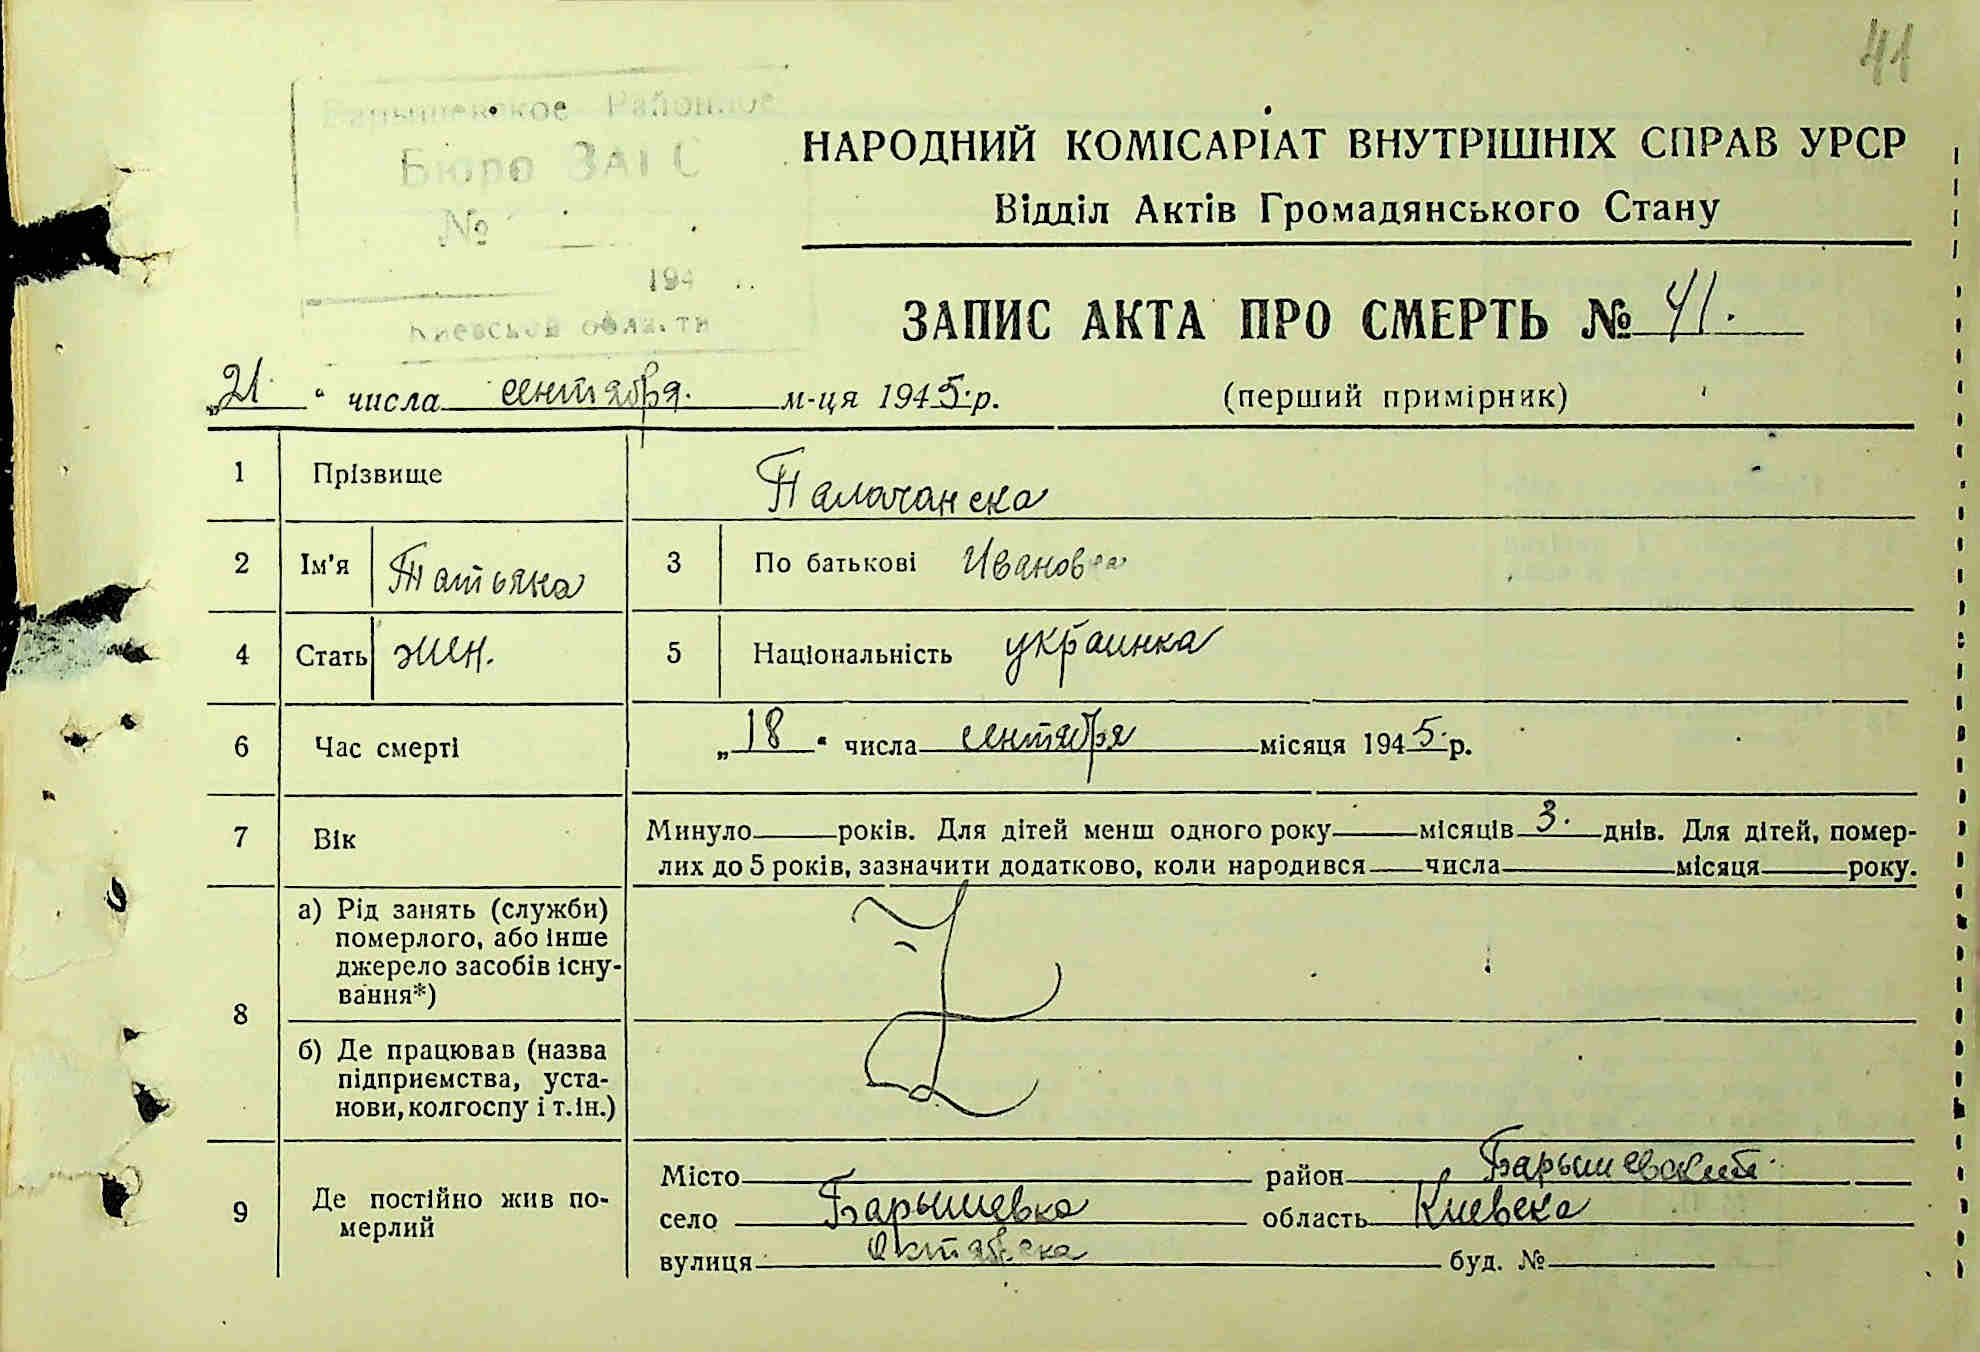 41
Барышевское Районное
Бюро ЗАГС
№
194
Киевской области
НАРОДНИЙ КОМІСАРІАТ ВНУТРІШНІХ СПРАВ УРСР
Відділ Актів Громадянського Стану
ЗАПИС АКТА ПРО СМЕРТЬ № 41.
„21“ числа сентября. м-ця 1945 р. (перший примірник)
1 Прізвище Палачанска
2 Ім'я Татьяна 3 По батькові Ивановна
4 Стать жен. 5 Національність украинка
6 Час смерті „18“ числа сентября місяця 1945 р.
7 Вік Минуло року років. Для дітей менш одного року місяців 3. днів. Для дітей, помер-
лих до 5 років, зазначити додатково, коли народився числа місяця року.
8 а) Рід занять (служби)
померлого, або інше
джерело засобів існу-
вання*)
б) Де працював (назва
підприємства, уста-
нови, колгоспу і т.ін.)
9 Де постійно жив по-
мерлий
Місто район Барышевский
село Барышевка область Киевска
вулиця Октябрска буд. №